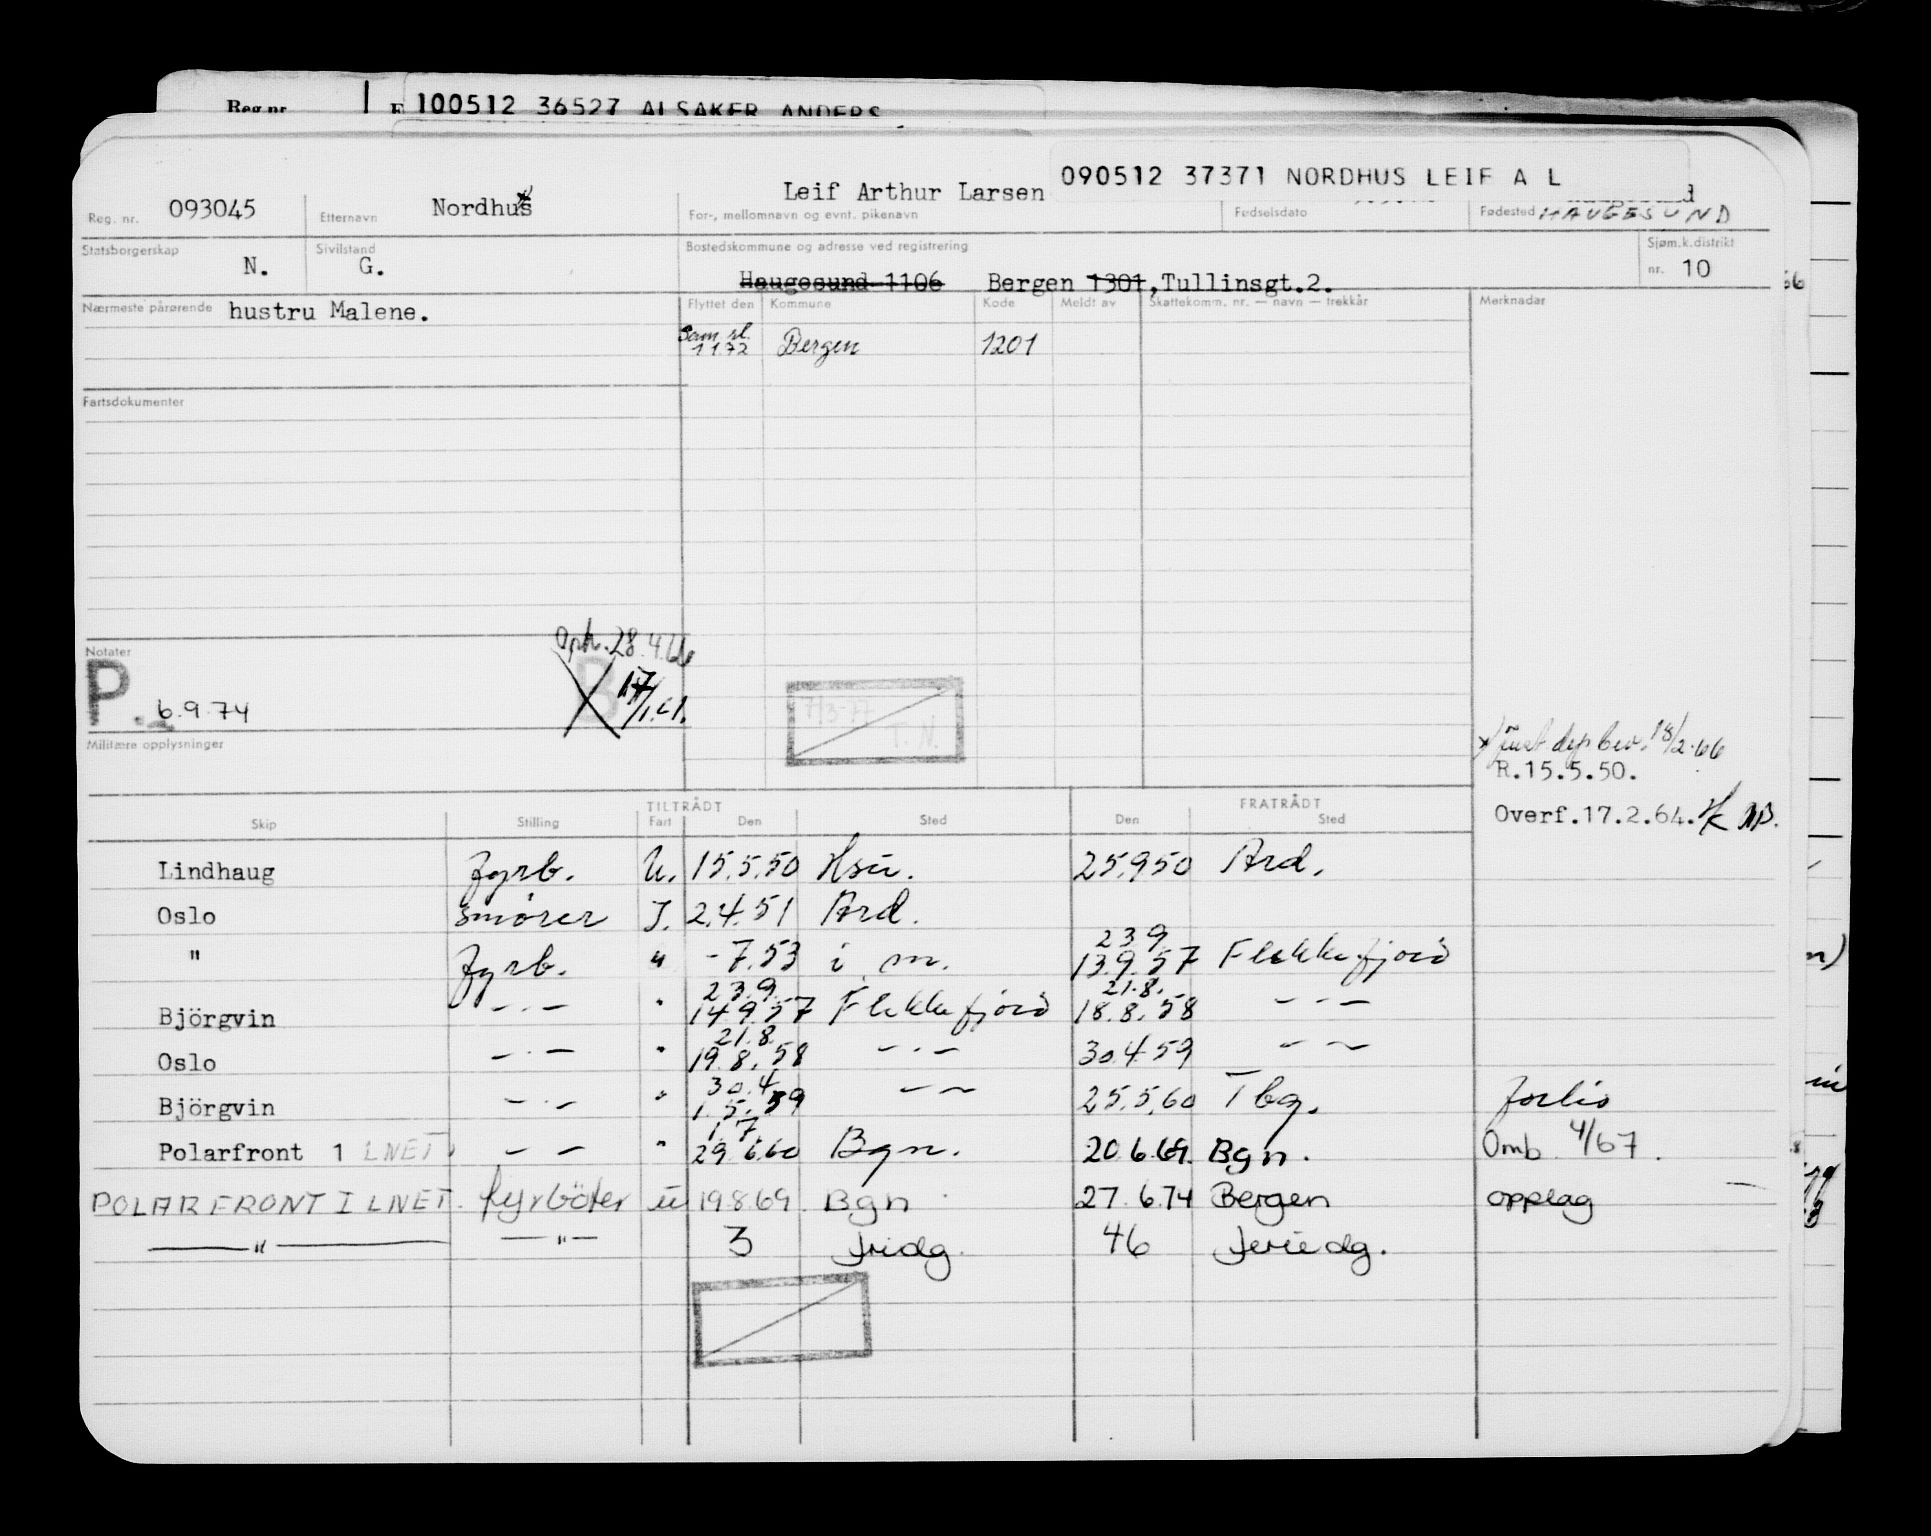 Reg.nr
100512 36527 ALSAKER ANDERS
090512 37371 NORDHUS LEIF A L
Reg. nr. 093045 Etternavn Nordhus Leif Arthur Larsen
For-, mellomnavn og evnt. pikenavn Fødselsdato Fødested HAUGESUND
Statsborgerskap N. Sivilstand G. Bostedskommune og adresse ved registrering Sjøm.k.distrikt
Haugesund 1106 Bergen 1301,Tullinsgt.2. nr. 10
Nærmeste pårørende hustru Malene. Flyttet den Kommune Kode Meldt av Skattekomm. nr. — navn — trekkår Merknader
Sam. sl.
1 1 72 Bergen 1201
Fartsdokumenter
Oph. 28.4.66
Notater
P B 17/1.61.
6.9.74
7/3-77
T. N.
Militære opplysninger
x/ just dep bev. 18/2.66
R.15.5.50.
Overf.17.2.64.
TILTRÅDT FRATRÅDT
Skip Stilling Fart Den Sted Den Sted
Lindhaug fyrb. U. 15.5.50 Hsu. 25.9.50 Ard.
Oslo smörer I. 2.4.51 Ard.
23 9
" fyrb. " -7.53 i m. 13.9.57 Flekkefjord
23.9. 21.8.
Björgvin — · — " 14.9.57 Flekkefjord 18.8.58 — · —
21.8.
Oslo — · — " 19.8.58 — · — 30.4.59 — · —
30.4.
Björgvin — · — " 1.5.59 — — 25.5.60 Tbg. forlis
1.7.
Polarfront 1 LNET — — " 29.6.60 Bgn. 20.6.69. Bgn. Omb. 4/67.
POLARFRONT I LNET. fyrböter u 19.8.69 Bgn 27.6.74 Bergen opplag
— " — — " — 3 fridg. 46 feriedg.